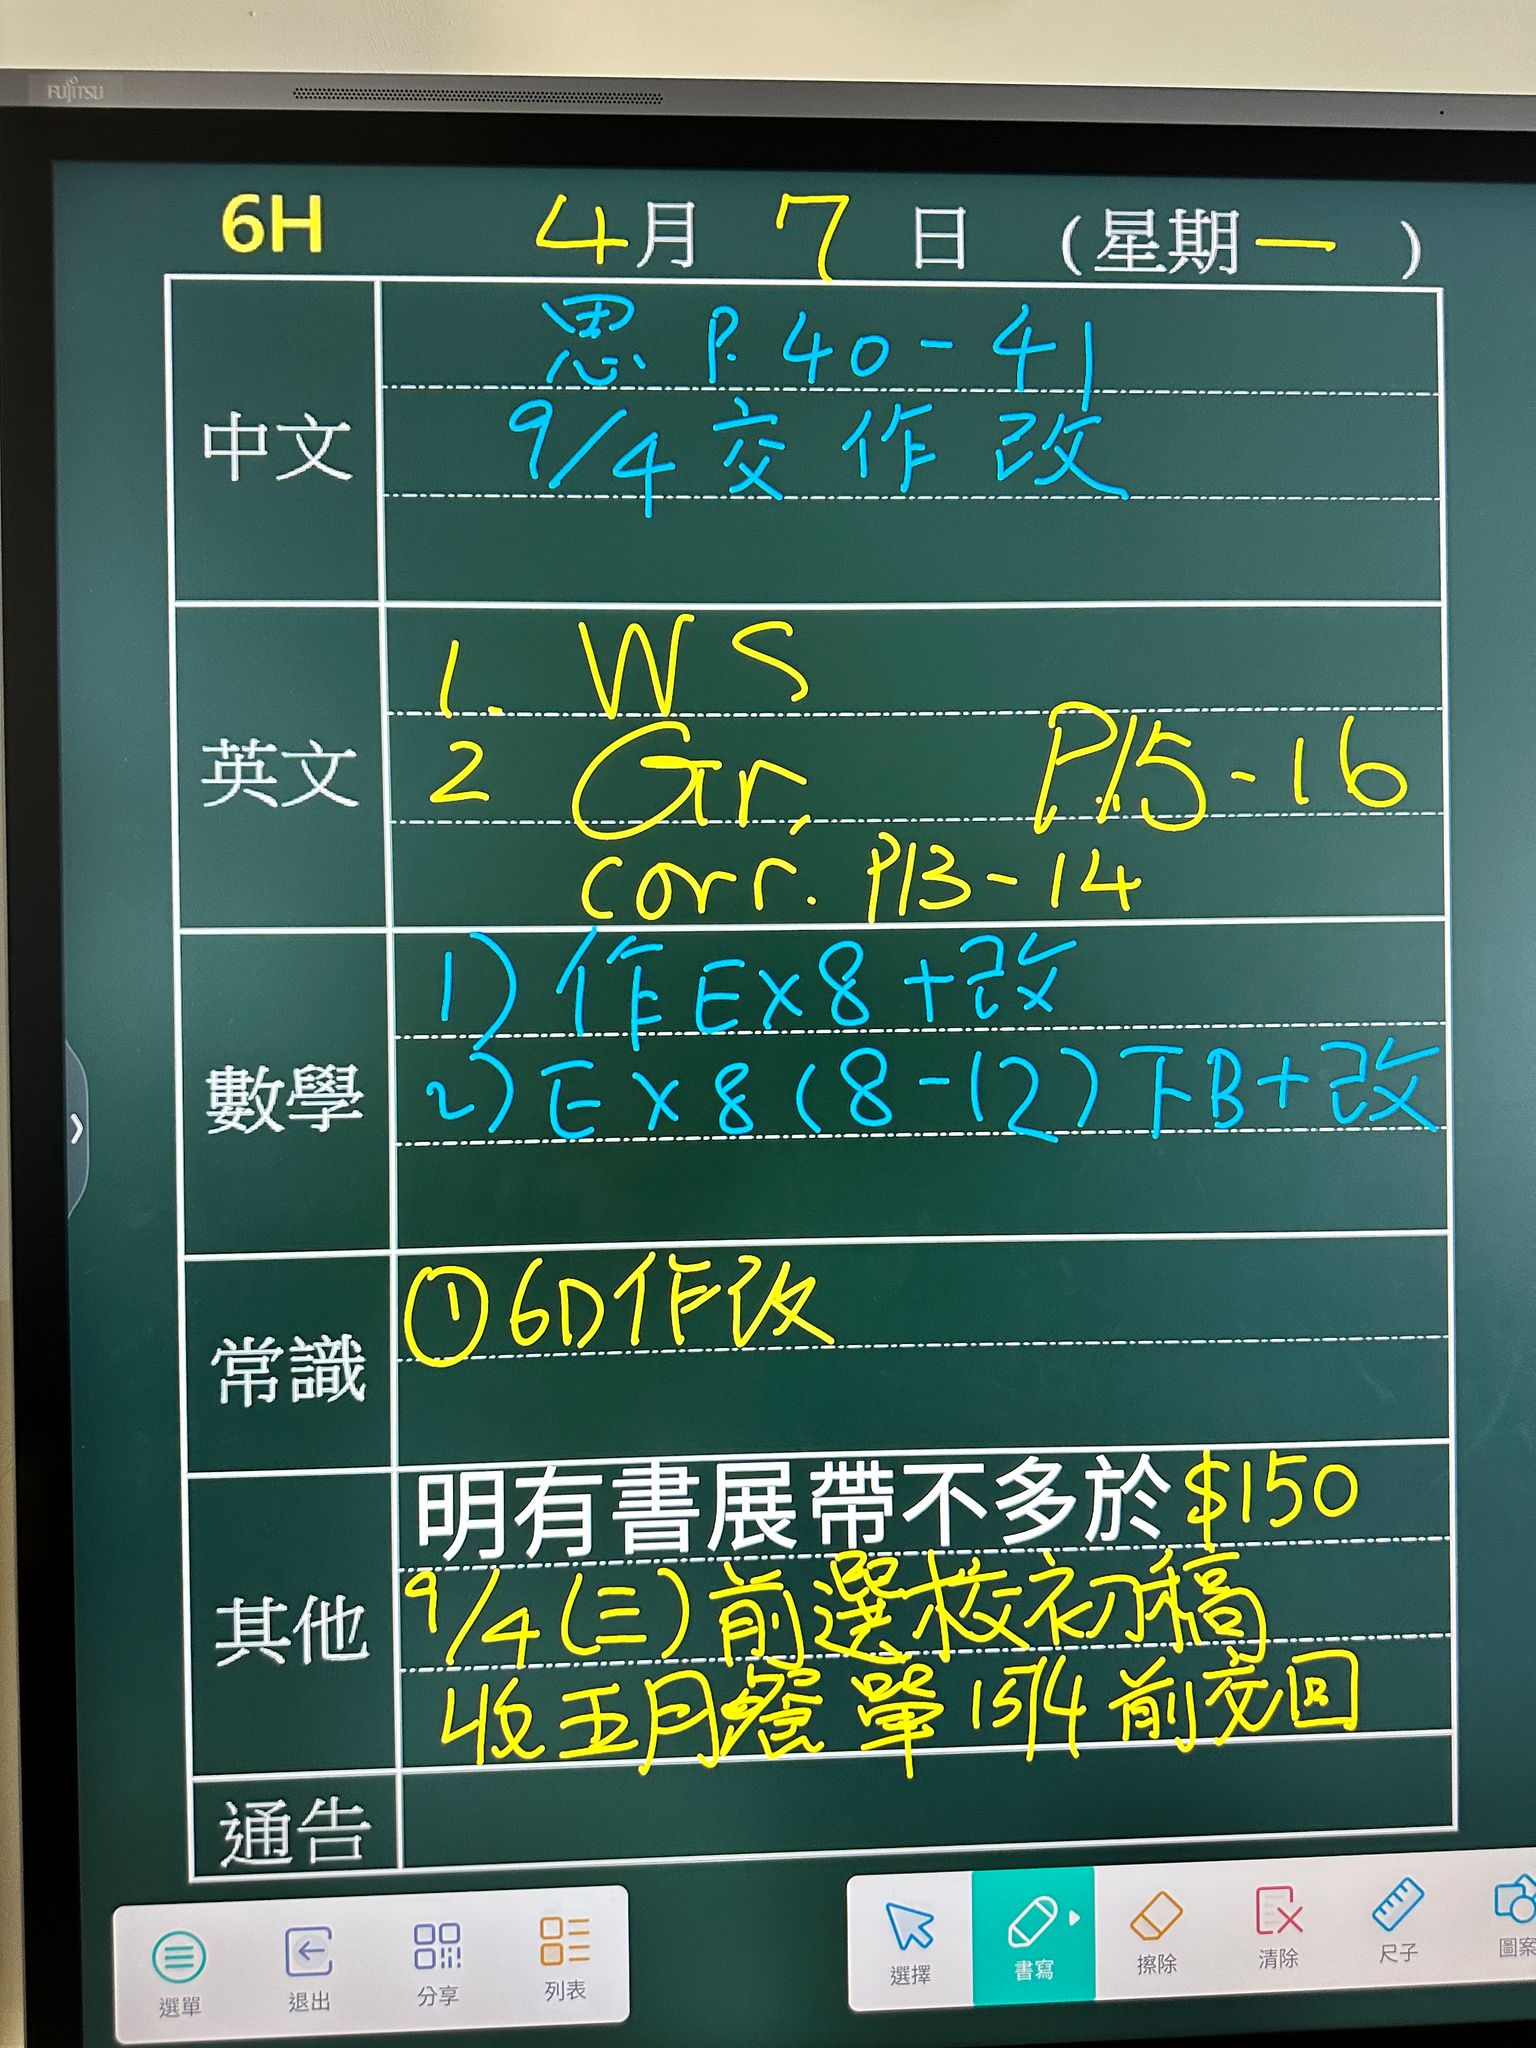 FUJITSU
6H 4月 7日 (星期一)
中文
思 P. 40-41
9/4 交作改
英文
1. WS
2 Gr, P.15-16
corr. P13-14
數學
1) 作Ex8+改
2) Ex8(8-12)下B+改
常識
① 6D作改
其他
明有書展帶不多於$150
9/4(三)前選校初稿
收五月餐單15/4前交回
通告
選單 退出 分享 列表
選擇 書寫 擦除 清除 尺子 圖案